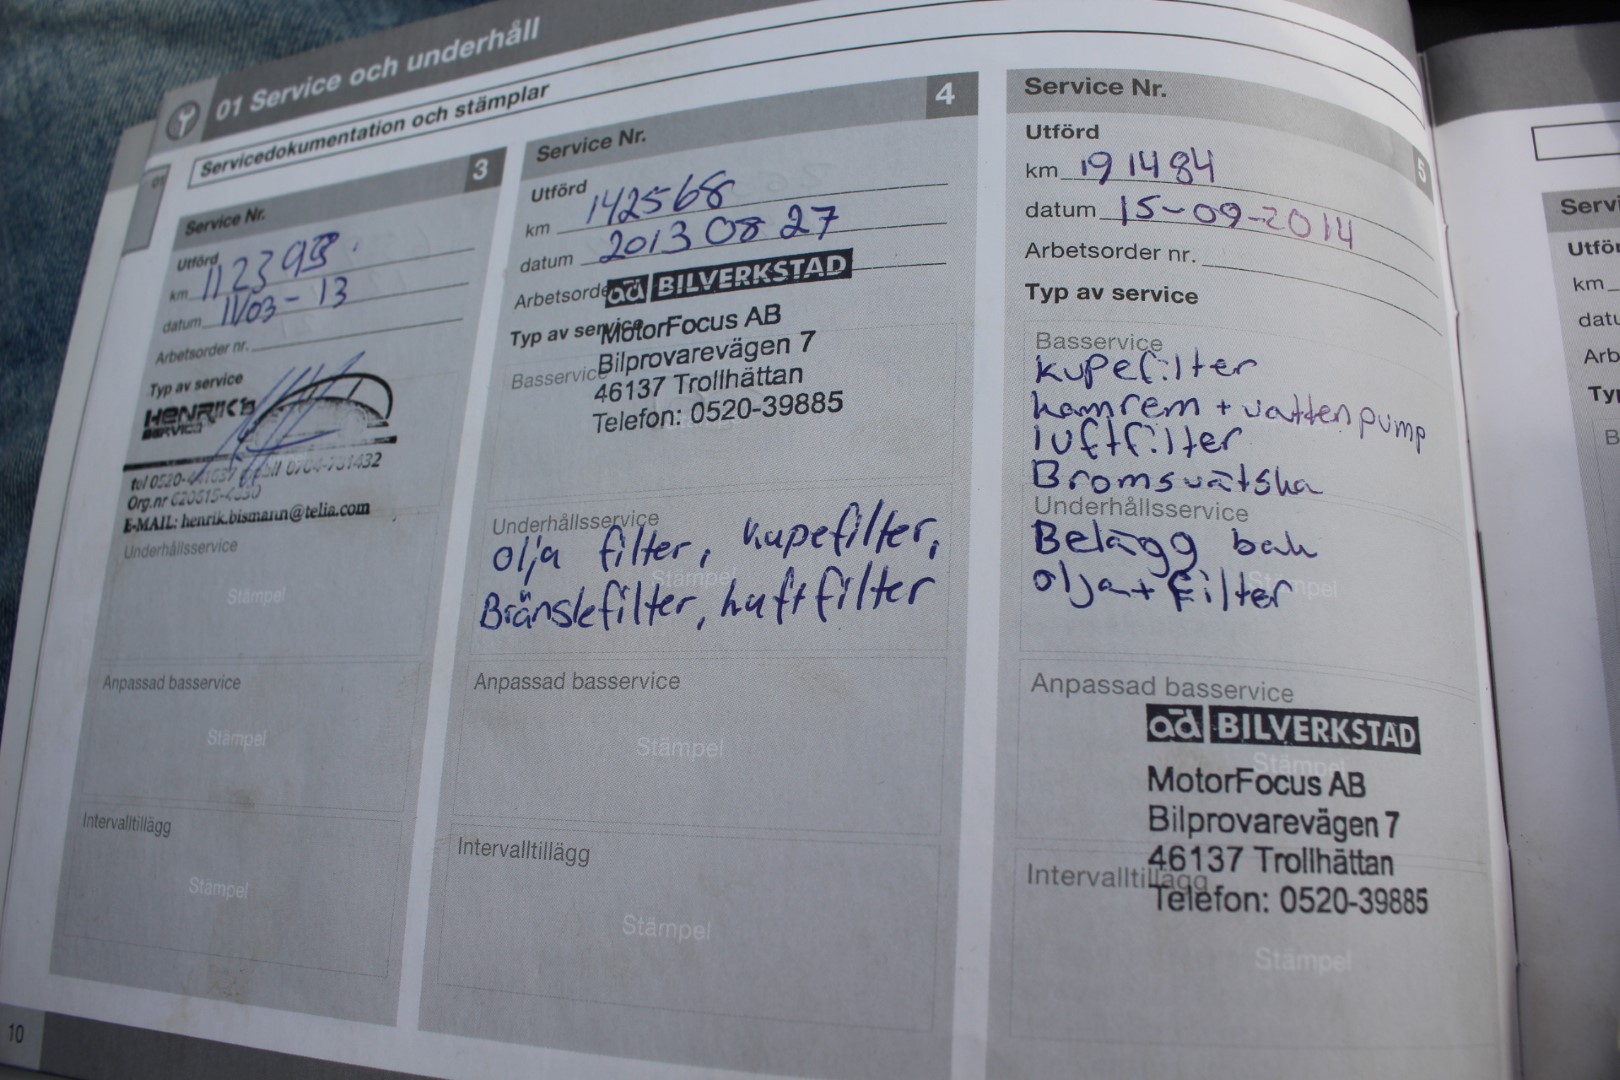 01 Service och underhåll
Servicedokumentation och stämplar
Service Nr. 3
Utförd
km 112393
datum 11/03-13
Arbetsorder nr.
Typ av service
HENRIK'S
SERVICE
tel 0520- 0704-731432
Org.nr
E-MAIL: henrik.bismann@telia.com
Underhållsservice
Stämpel
Anpassad basservice
Stämpel
Intervalltillägg
Stämpel
10
Service Nr. 4
Utförd
km 142568
datum 2013 08 27
Arbetsorde
ad BILVERKSTAD
Typ av service
MotorFocus AB
Basservice
Bilprovarevägen 7
46137 Trollhättan
Telefon: 0520-39885
Underhållsservice
olja filter, kupefilter,
Stämpel
Bränslefilter, luftfilter
Anpassad basservice
Stämpel
Intervalltillägg
Stämpel
Service Nr. 5
Utförd
km 191484
datum 15-09-2014
Arbetsorder nr.
Typ av service
Basservice
kupefilter
kamrem + vattenpump
luftfilter
Bromsvätska
Underhållsservice
Belägg bak
olja + filter
Stämpel
Anpassad basservice
ad BILVERKSTAD
Stämpel
MotorFocus AB
Bilprovarevägen 7
46137 Trollhättan
Intervalltillägg
Telefon: 0520-39885
Stämpel
Servi
Utför
km
datu
Arb
Typ
B